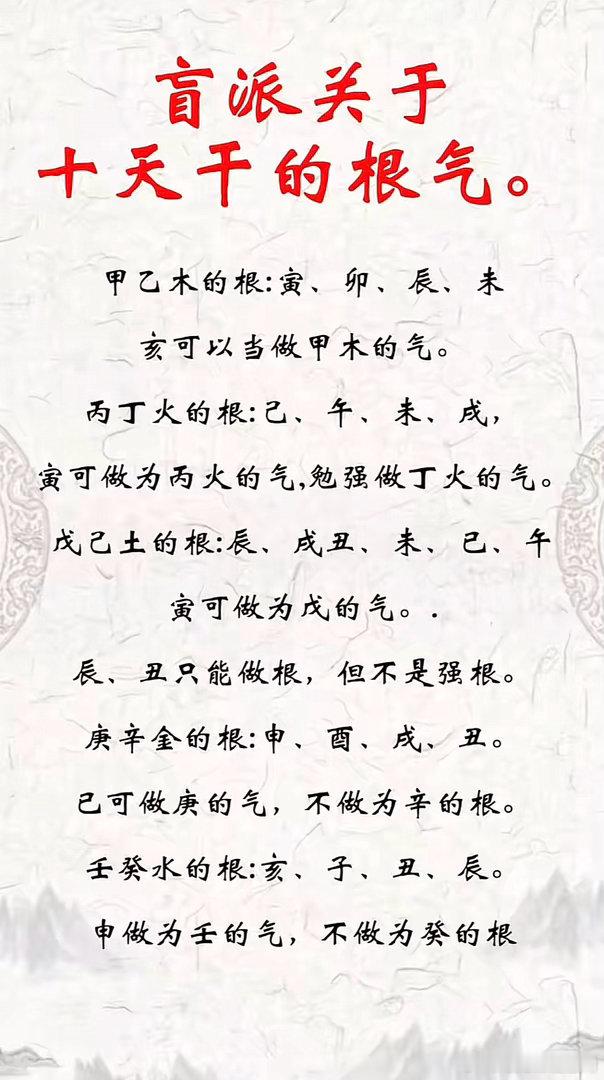 盲派关于
十天干的根气。
甲乙木的根:寅、卯、辰、未
亥可以当做甲木的气。
丙丁火的根:己、午、未、戌,
寅可做为丙火的气,勉强做丁火的气。
戊己土的根:辰、戌丑、未、已、午
寅可做为戊的气。.
辰、丑只能做根，但不是强根。
庚辛金的根:申、酉、戌、丑。
已可做庚的气，不做为辛的根。
壬癸水的根:亥、子、丑、辰。
申做为壬的气，不做为癸的根